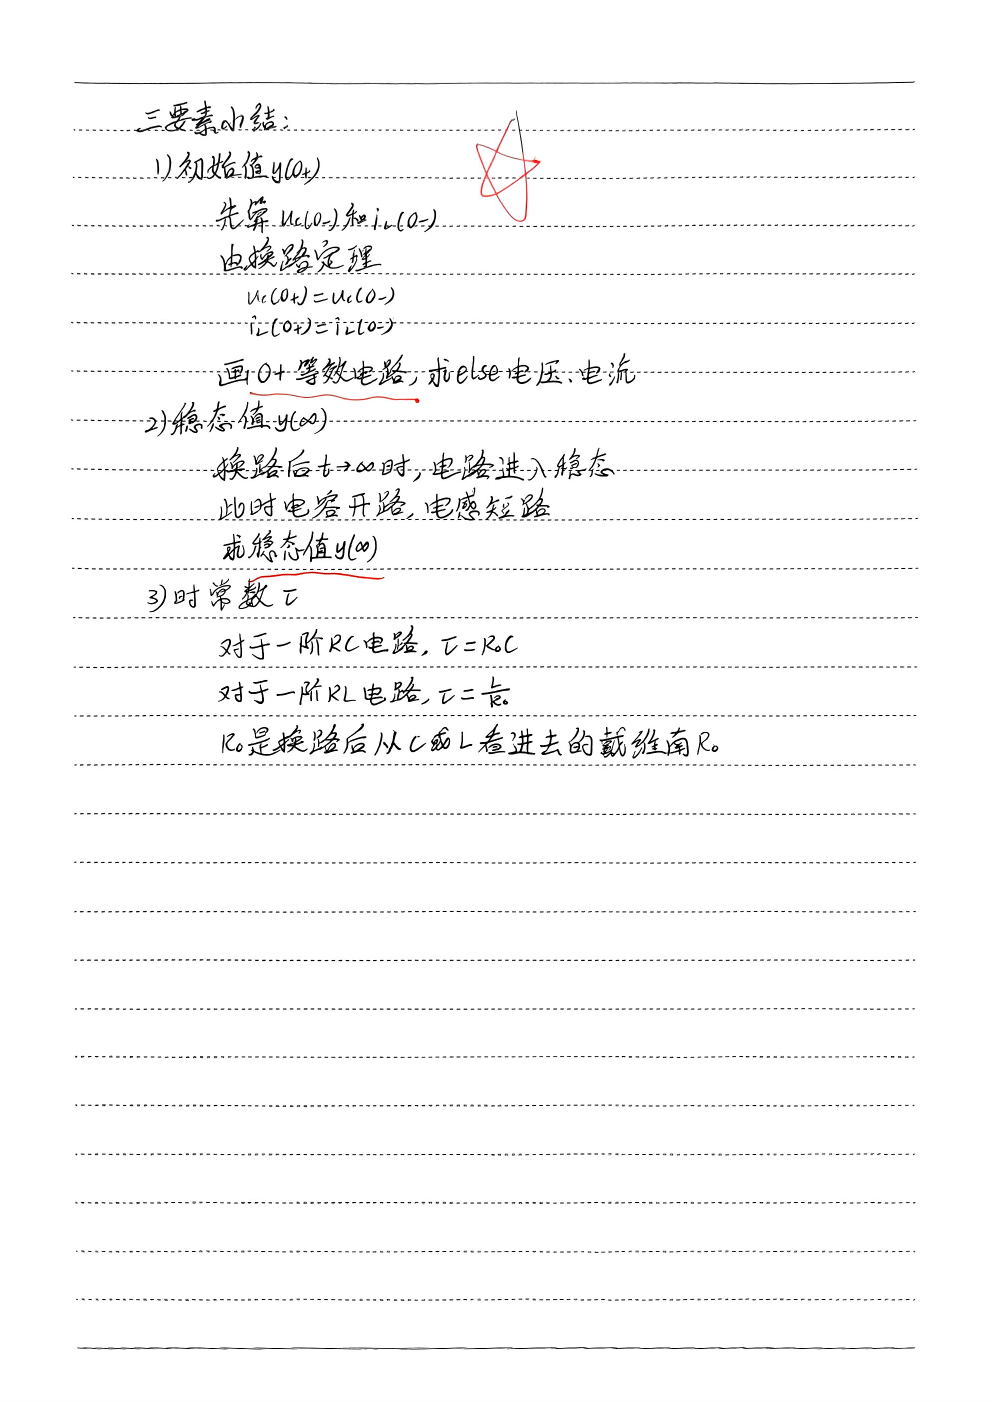 三要素小结:
1)初始值y(0+)
先算uc(0-)和iL(0-)
由换路定理
uc(0+)=uc(0-)
iL(0+)=iL(0-)
画0+等效电路,求else电压、电流
2)稳态值y(∞)
换路后t→∞时,电路进入稳态
此时电容开路,电感短路
求稳态值y(∞)
3)时常数τ
对于一阶RC电路,τ=R₀C
对于一阶RL电路,τ=L/R₀
R₀是换路后从C或L看进去的戴维南R₀